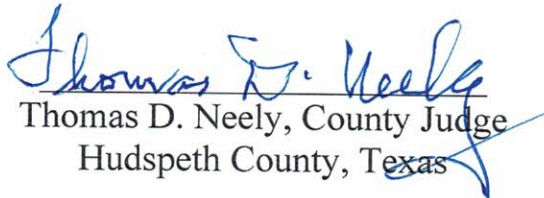 Thomas D. Neely
Thomas D. Neely, County Judge
Hudspeth County, Texas